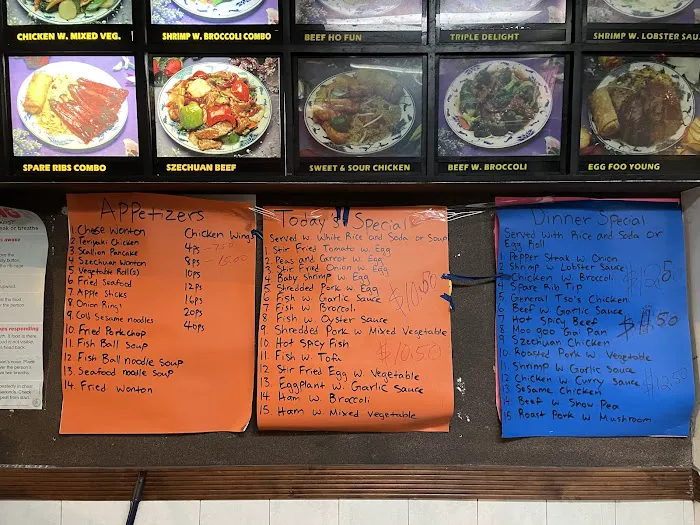 CHICKEN W. MIXED VEG.
SHRIMP W. BROCCOLI COMBO
BEEF HO FUN
TRIPLE DELIGHT
SHRIMP W. LOBSTER SAU
SPARE RIBS COMBO
SZECHUAN BEEF
SWEET & SOUR CHICKEN
BEEF W. BROCCOLI
EGG FOO YOUNG
Appetizers
1 Chese Wonton
2 Teriyaki Chicken
3 Stallion Pancake
4 Szechuan Wonton
5 Vegetable Roll(s)
6 Fried Seafood
7 Apple Sticks
8 Onion Rings
9. Cold Sesame noodles
10 Fried Porkchop
11 Fish Ball Soup
12 Fish Ball noodle Soup
13 Seafood noodle Soup
14 Fried Wonton
Chicken Wing
4ps - 7.50
8ps - 15.00
10ps
12ps
16ps
20ps
40ps
Today's Special
Served w. White Rice and Soda or Soup
1 Stir Fried Tomato w. Egg
2 Peas and Carrot w. Egg
3 Stir Fried Onion w. Egg
4 Baby Shrimp w. Egg
5 Shredded Pork w. Egg
6 Fish w. Garlic Sauce
7 Fish w. Broccoli
8 Fish w. Oyster Sauce
9. Shredded Pork w Mixed Vegetable
10 Hot Spicy Fish
11 Fish w. Tofu
12 Stir Fried Egg w. Vegetable
13 Eggplant w. Garlic Sauce
14 Ham w. Broccoli
15 Ham w. Mixed Vegetable
$10.50
$10.50
Dinner Special
Served with Rice and Soda or
Egg Roll
1 Pepper Steak w. Onion
2 Shrimp w. Lobster Sauce
3 Chicken w. Broccoli
4 Spare Rib Tip
5 General Tso's Chicken
6 Beef w. Garlic Sauce
7 Hot Spicy Beef
8 Moo goo Gai Pan
9 Szechuan Chicken
10 Roasted Pork w. Vegetable
11 Shrimp w. Garlic Sauce
12 Chicken w. Curry Sauce
13 Sesame Chicken
14 Beef w Snow Pea
15 Roast Pork w Mushroom
$12.50